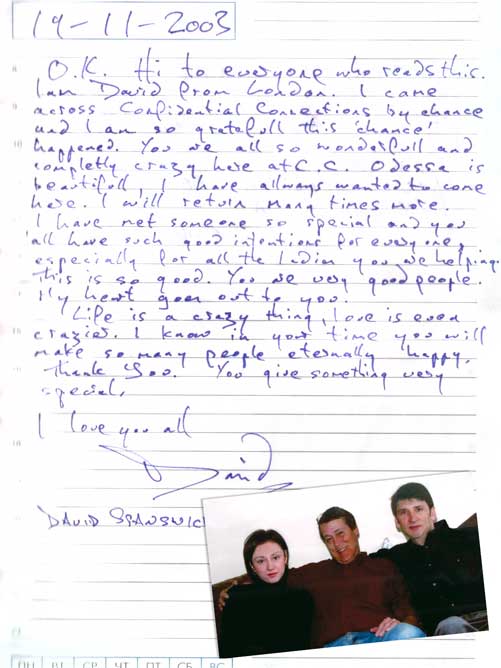 19-11-2003
O.K. Hi to everyone who reads this.
I am David from London. I came
across Confidential Connections by chance
and I am so gratefull this 'chance'
happened. You are all so wonderfull and
completly crazy here at C.C. Odessa is
beautifull, I have allways wanted to come
here. I will return many times more.
I have met someone so special and you
all have such good intentions for everyone,
especially for all the Ladies you are helping.
This is so good. You are very good people.
My heart goes out to you.
Life is a crazy thing, love is even
crazier. I know in your time you will
make so many people eternally happy.
Thank You. You give something very
special.
I love you all
David
DAVID
ПН ВТ СР ЧТ ПТ СБ ВС